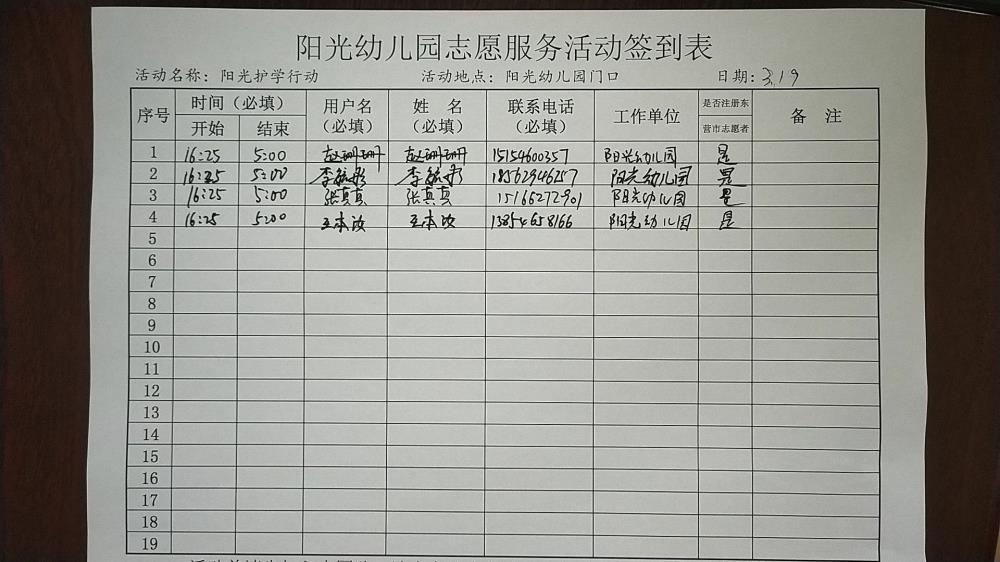 阳光幼儿园志愿服务活动签到表
活动名称：阳光护学行动 活动地点：阳光幼儿园门口 日期：3.19
序号 时间（必填） 用户名（必填） 姓 名（必填） 联系电话（必填） 工作单位 是否注册东营市志愿者 备 注
开始 结束
1 16:25 5:00 赵珊珊 赵珊珊 15154600357 阳光幼儿园 是
2 16:25 5:00 李 李 18562946257 阳光幼儿园 是
3 16:25 5:00 张真真 张真真 15166272901 阳光幼儿园 是
4 16:25 5:00 王本汝 王本汝 13854658166 阳光幼儿园 是
5
6
7
8
9
10
11
12
13
14
15
16
17
18
19